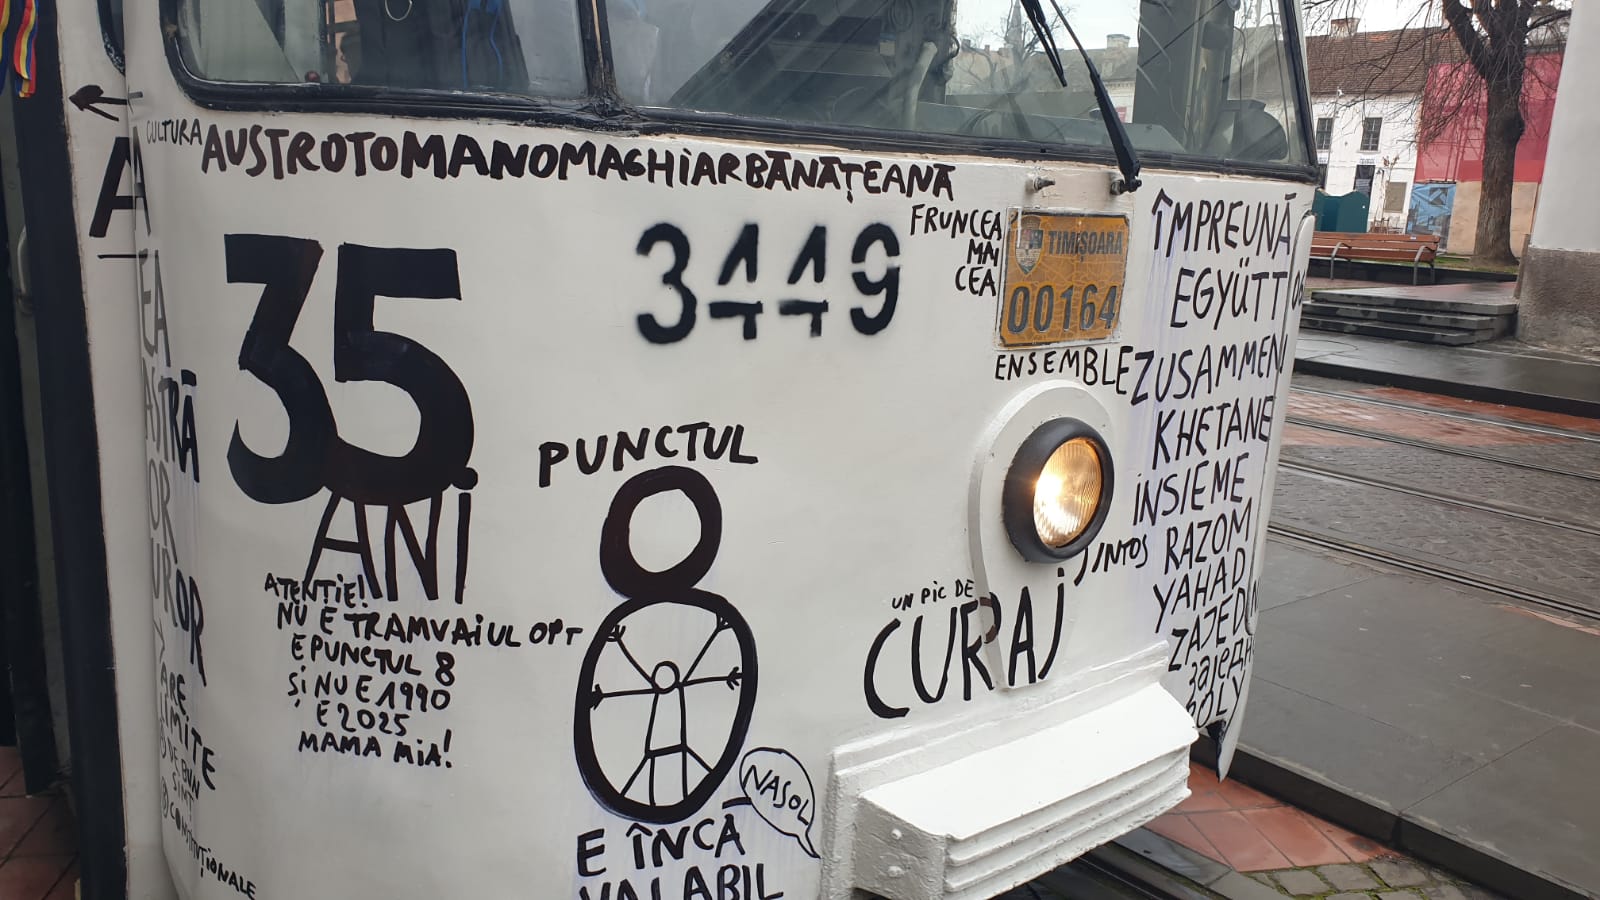 CULTURA
AUSTROTOMANOMAGHIARBĂNĂȚEANĂ
35
ANI
ATENȚIE!
NU E TRAMVAIUL OPT
E PUNCTUL 8
ȘI NU E 1990
E 2025
MAMA MIA!
3119
PUNCTUL
8
E ÎNCĂ
VALABIL
NASOL
UN PIC DE
CURAJ
FRUNCEA
MAI
CEA
TIMIȘOARA
00164
ÎMPREUNĂ
EGYÜTT
ENSEMBLE
ZUSAMMEN
KHETANE
INSIEME
JUNTOS
RAZOM
YAHAD
ARE
LIMITE
DE BUN
SIMȚ
CONSTITUȚIONALE